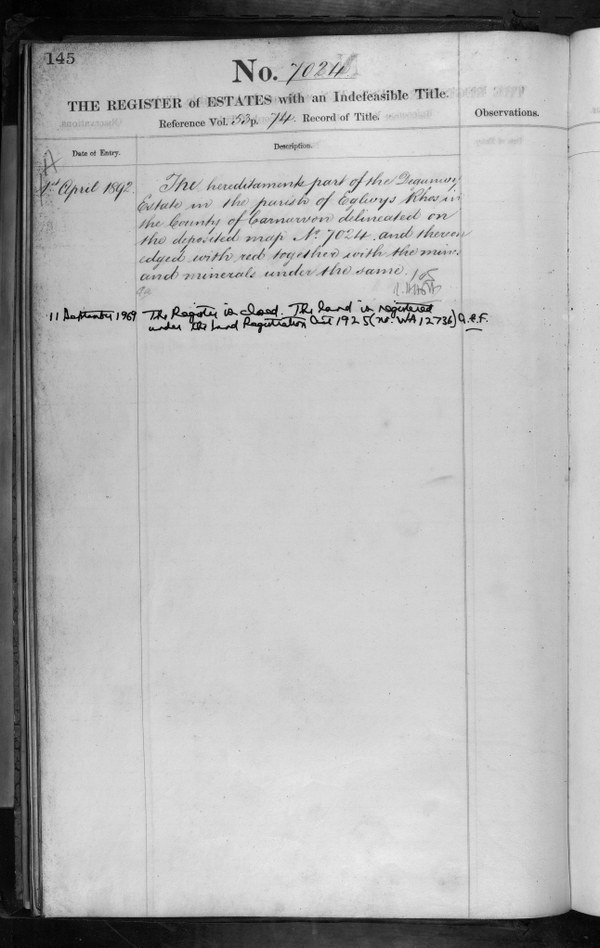 145
No. 7024
THE REGISTER of ESTATES with an Indefeasible Title.
Reference Vol. 53 p. 74. Record of Title.
Observations.
Date of Entry.
Description.
A
1st April 1892.
The hereditaments part of the Deganwy
Estate in the parish of Eglwys Rhos in
the County of Carnarvon delineated on
the deposited map No. 7024. and thereon
edged with red together with the mines
and minerals under the same.
11 September 1969 The Register is closed. The land is registered
under the Land Registration Act 1925 (no. WA 12736)